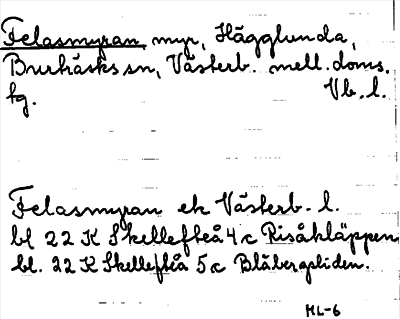 Felasmyran, myr, Hägglunda,
Burträsks sn, Västerb. mell. doms.
tg. Vb. l.
Felasmyran ek Västerb. l.
bl 22 K Skellefteå 4 c Risåkläppen
bl. 22 K Skellefteå 5 c Blåbergsliden.
ML-6